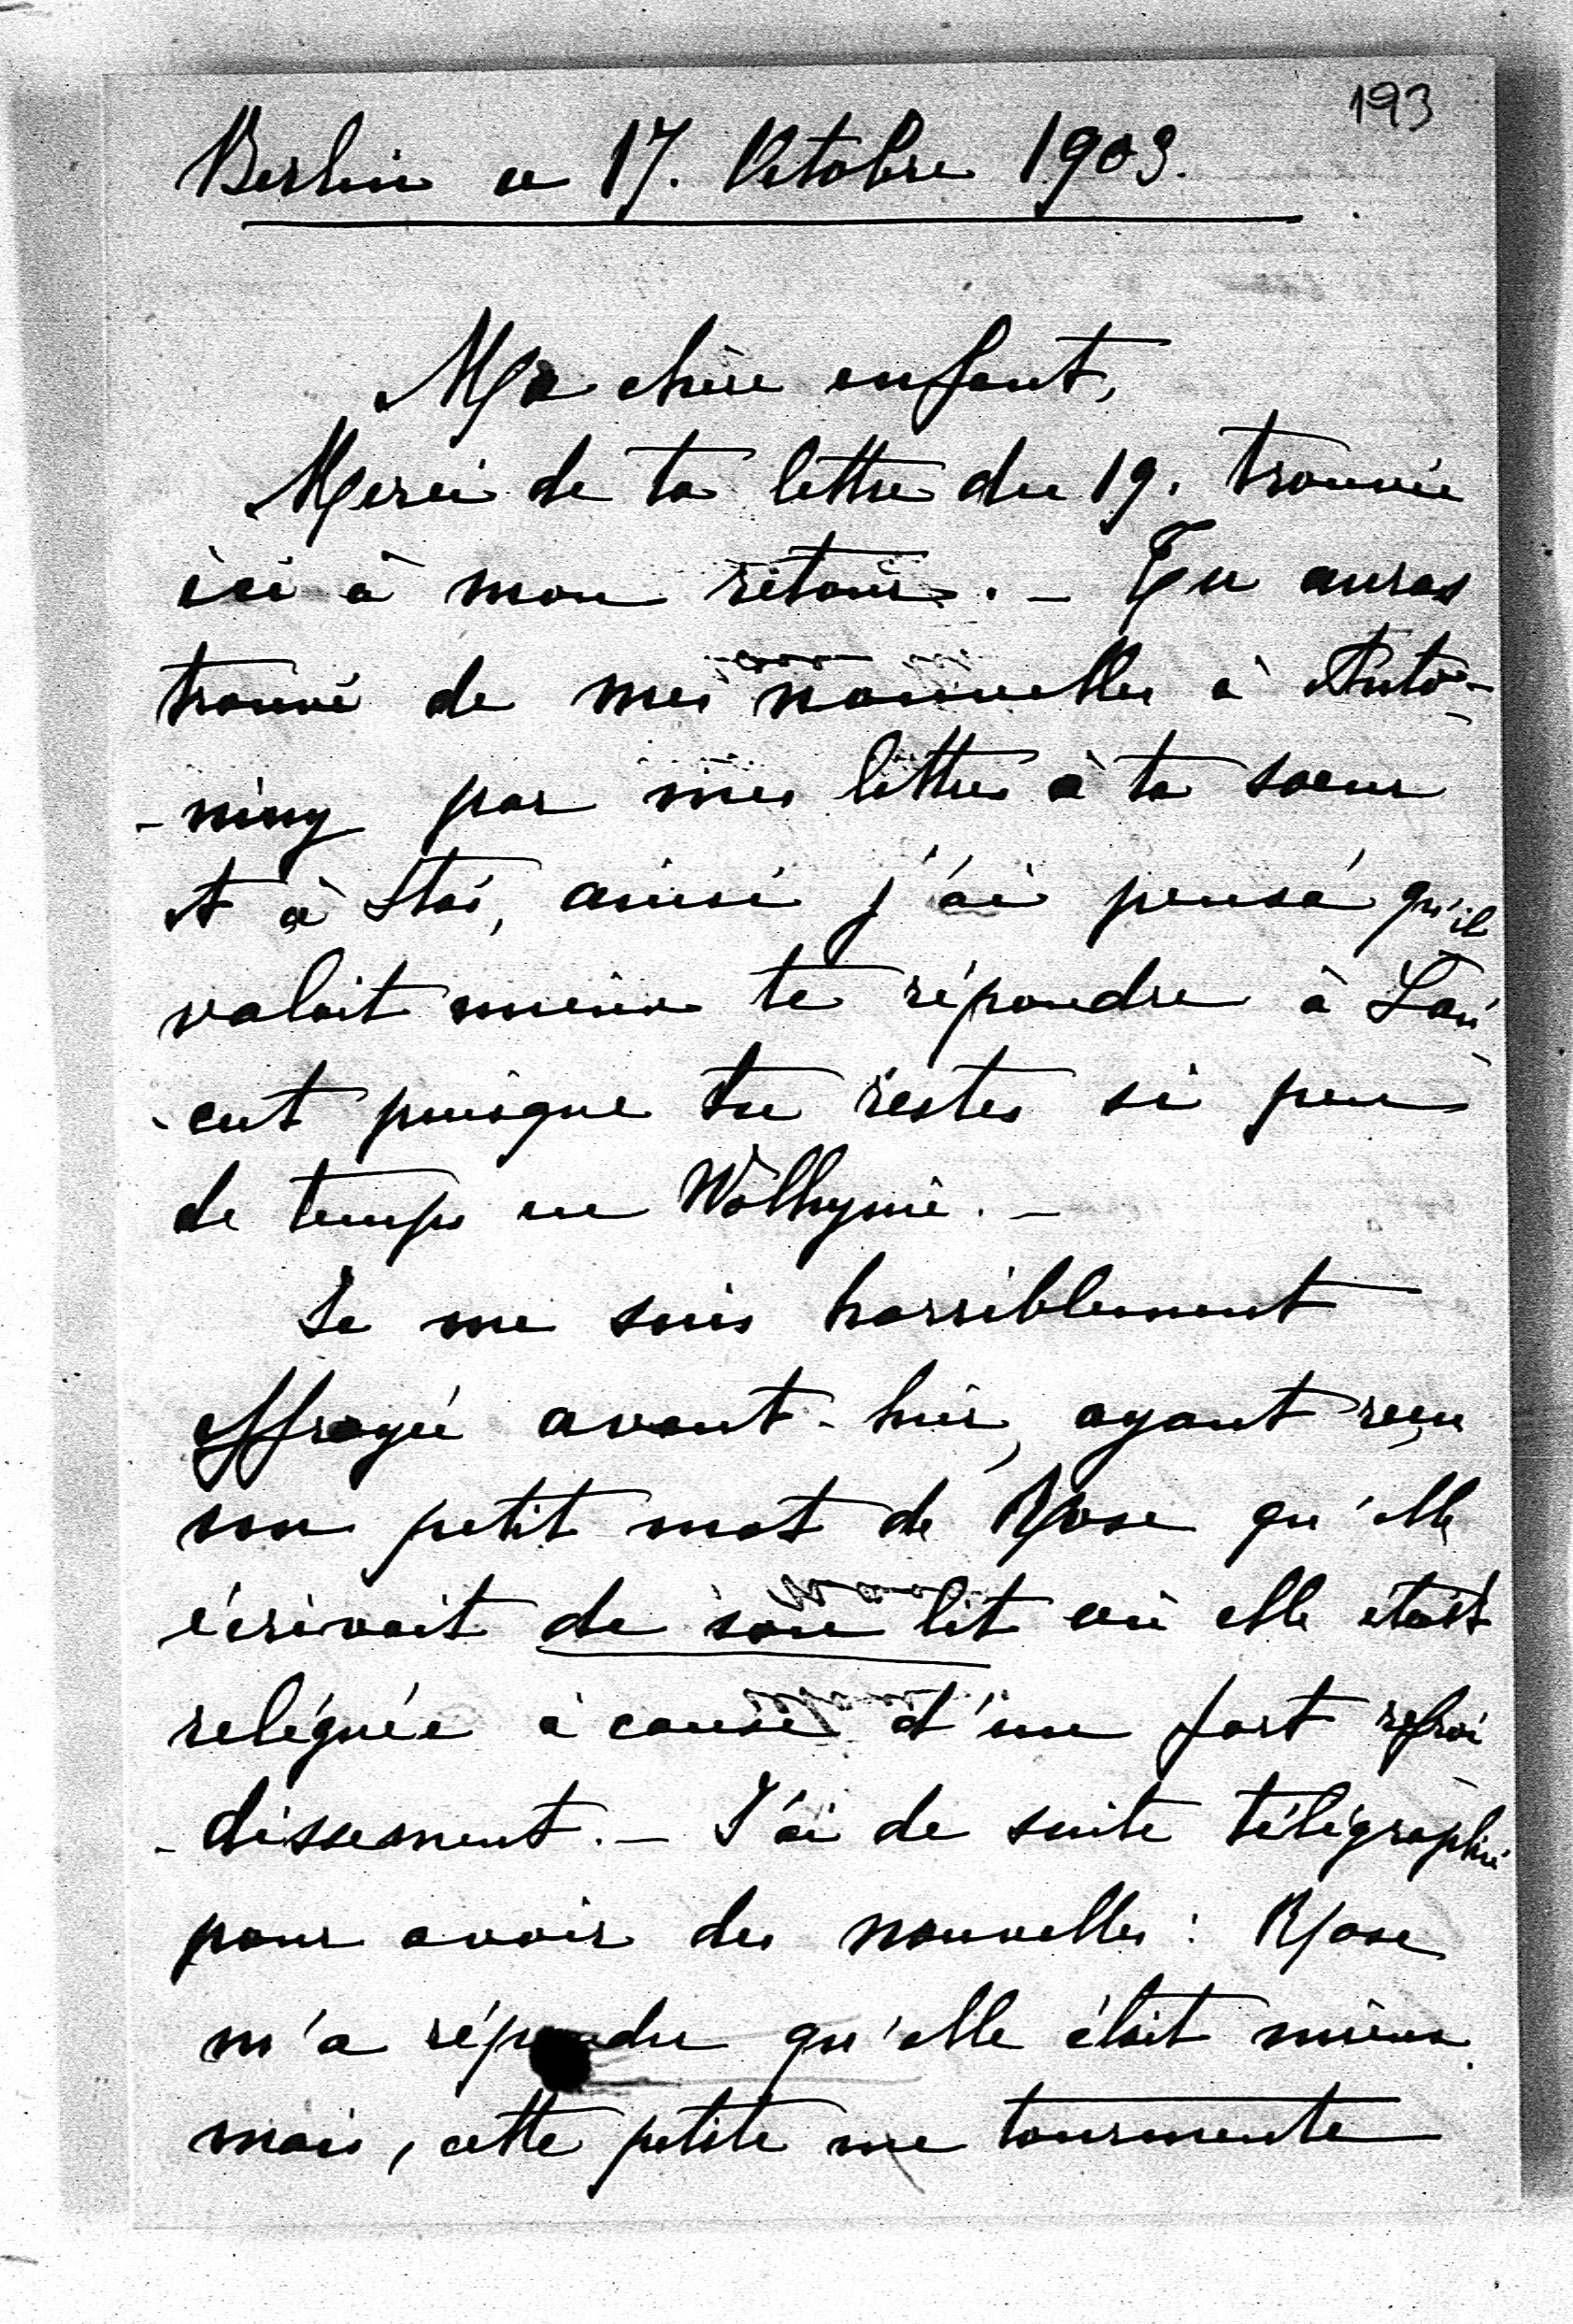 193
Berlin ce 17. Octobre 1903.
Ma chère enfant,
Merci de ta lettre du 19. trouvée
ici à mon retour. – Tu auras
trouvé de mes nouvelles à Anto-
-niny par mes lettres à ta soeur
et à Staś, ainsi j'ai pensé qu'il
valait mieux te répondre à Łań
-cut puisque tu restes si peu
de temps en Wolhynie. –
Je me suis horriblement
effrayée avant-hier, ayant reçu
un petit mot de Rose qu'elle
écrivait de son lit où elle était
reléguée à cause d'un fort refroi
-dissement. – J'ai de suite télégraphié
pour avoir des nouvelles : Rose
m'a répondu qu'elle était mieux
mais, cette petite me tourmente